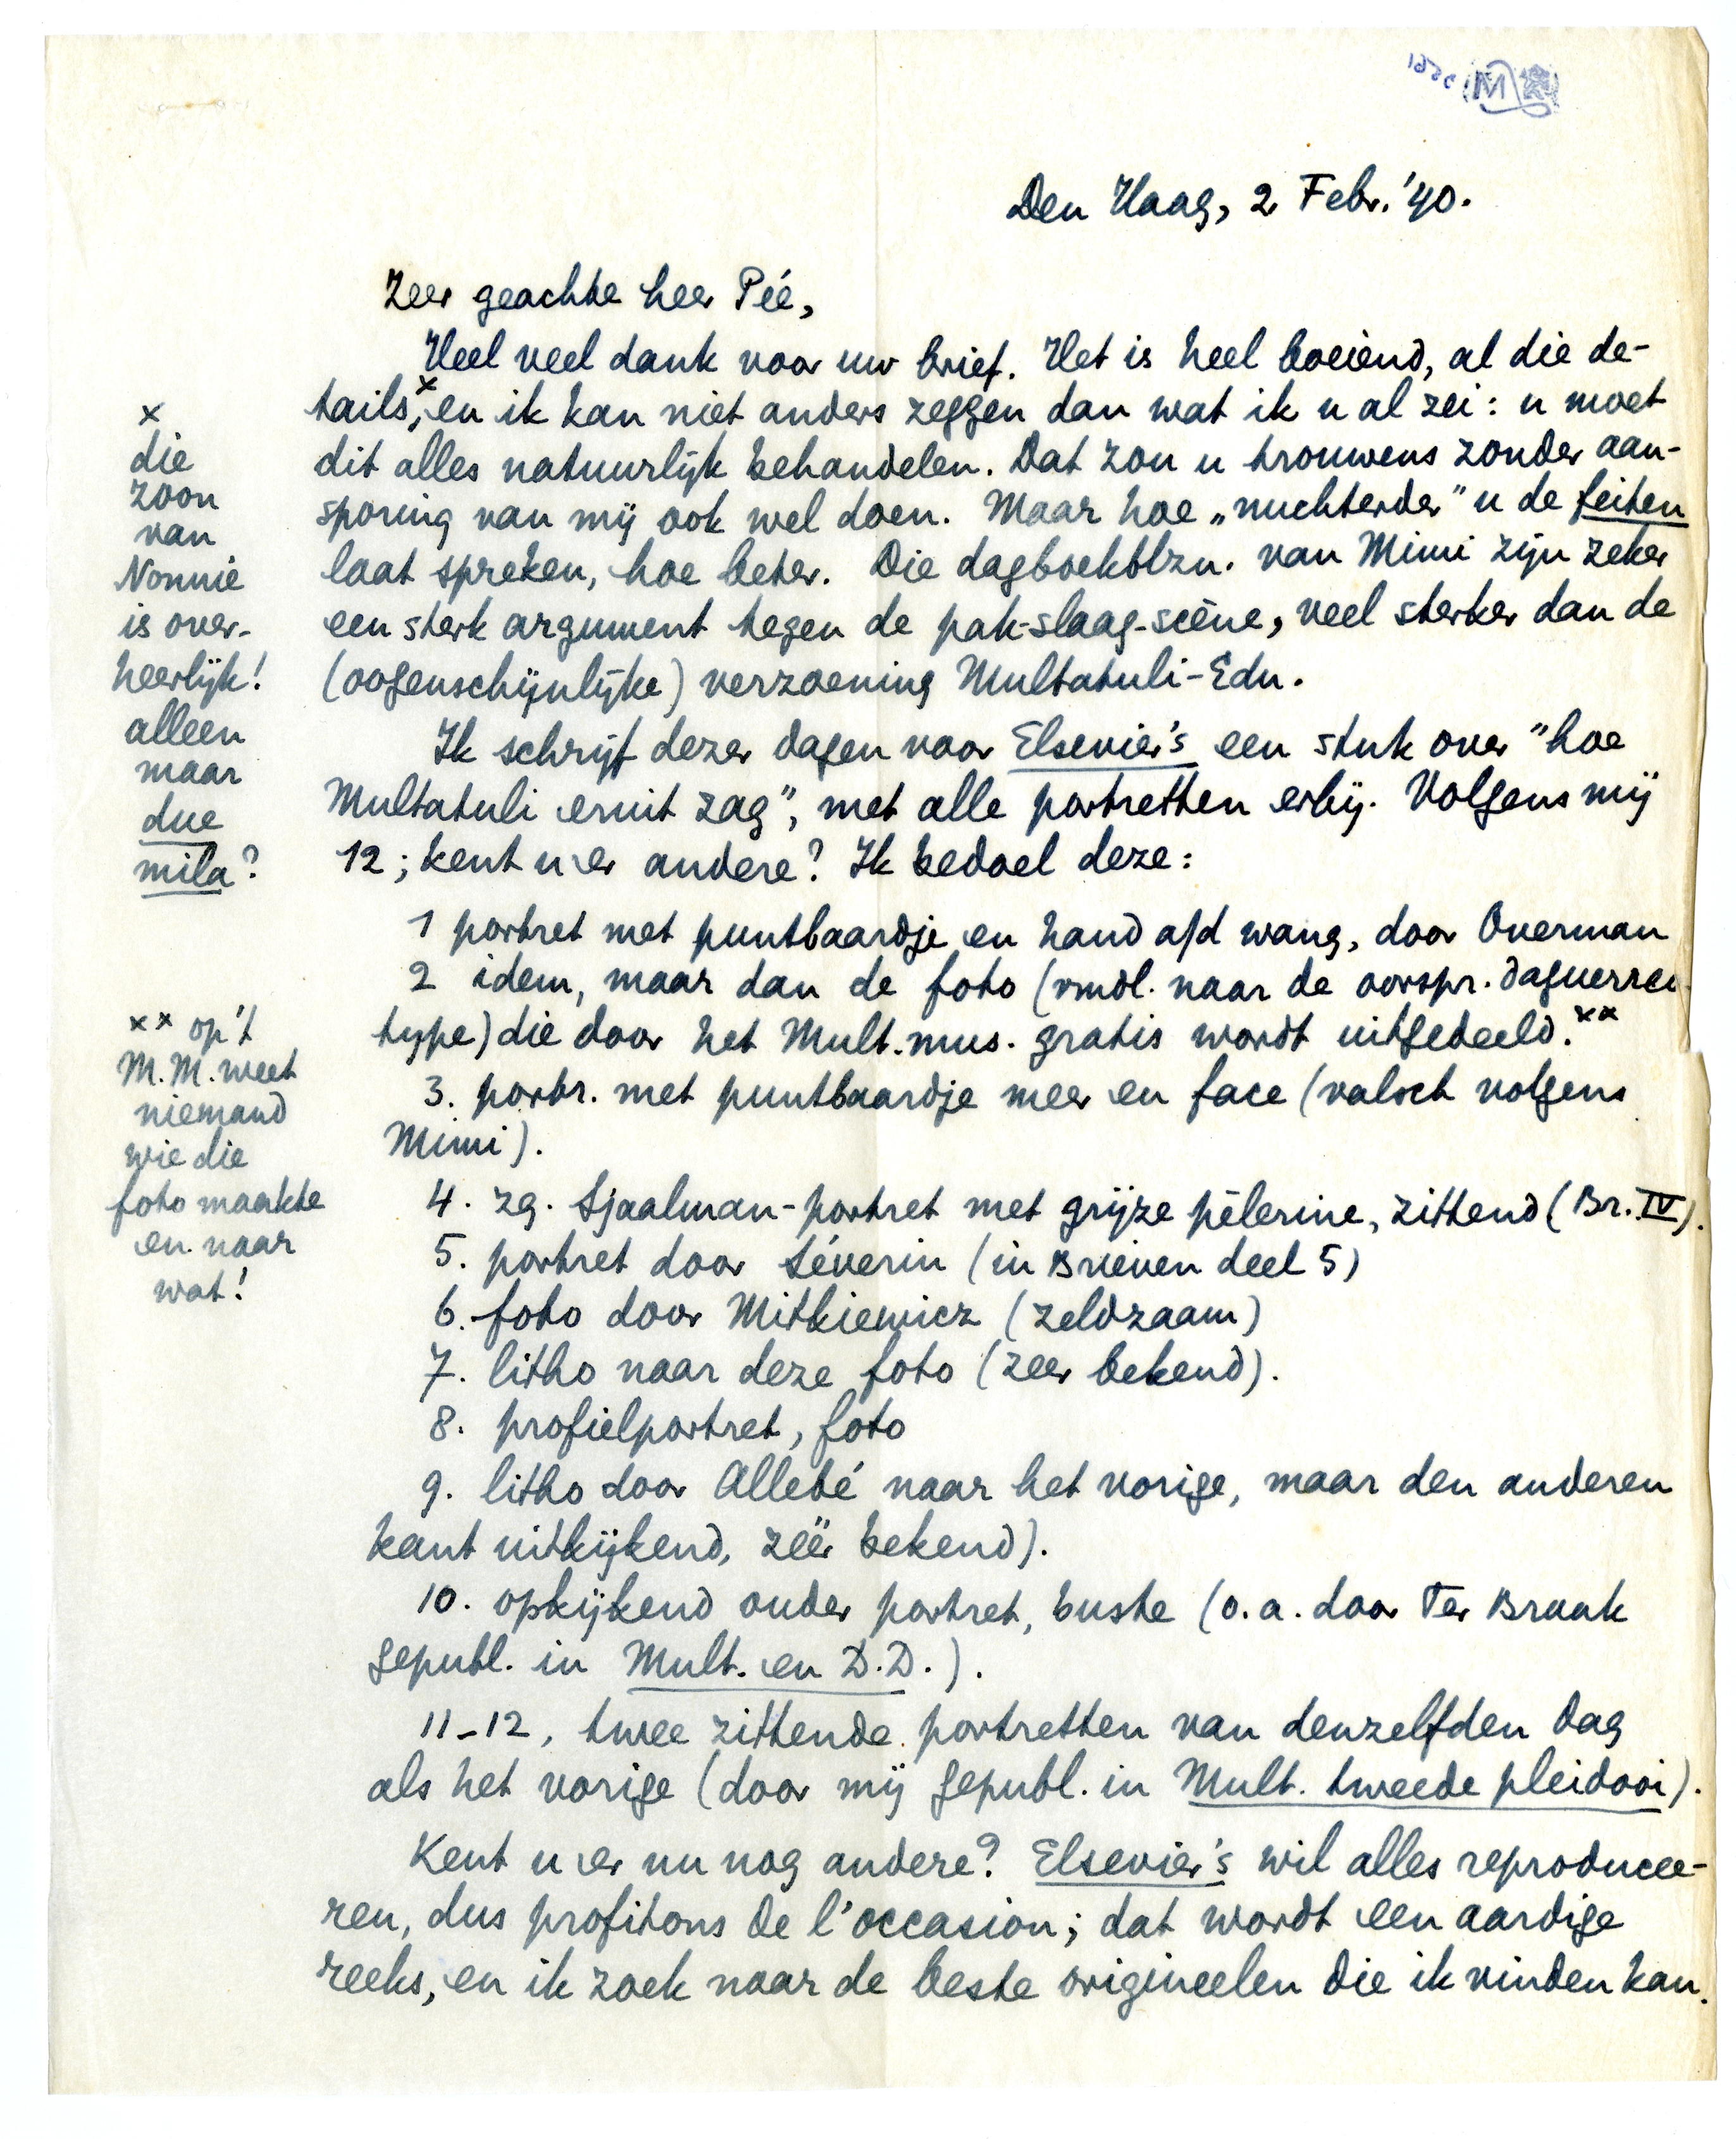 Den Haag, 2 Febr. '40.
Zeer geachte heer Pée,
Heel veel dank voor uw brief. Het is heel boeiend, al die de-
tails,ˣ en ik kan niet anders zeggen dan wat ik u al zei: u moet
dit alles natuurlijk behandelen. Dat zou u trouwens zonder aan-
sporing van mij ook wel doen. Maar hoe „nuchterder" u de feiten
laat spreken, hoe beter. Die dagboekblzn. van Mimi zijn zeker
een sterk argument tegen de pak-slaag-scène, veel sterker dan de
(oogenschijnlijke) verzoening Multatuli-Edu.
Ik schrijf dezer dagen voor Elsevier's een stuk over "hoe
Multatuli eruit zag", met alle portretten erbij. Volgens mij
12; kent u er andere? Ik bedoel deze:
1 portret met puntbaardje en hand a/d wang, door Overman
2 idem, maar dan de foto (vmdl. naar de oorspr. daguerreo-
type) die door het Mult.mus. gratis wordt uitgedeeld.ˣˣ
3. portr. met puntbaardje meer en face (valsch volgens
Mimi).
4. zg. Sjaalman-portret met grijze pèlerine, zittend (Br. IV).
5. portret door Séverin (in Brieven deel 5)
6. foto door Mitkiewicz (zeldzaam)
7. litho naar deze foto (zeer bekend).
8. profielportret, foto
9. litho door Allebé naar het vorige, maar den anderen
kant uitkijkend, zéér bekend).
10. opkijkend ouder portret, buste (o.a. door Ter Braak
gepubl. in Mult. en D.D.).
11-12, twee zittende portretten van denzelfden dag
als het vorige (door mij gepubl. in Mult. tweede pleidooi).
Kent u er nu nog andere? Elsevier's wil alles reproducee-
ren, dus profitons de l'occasion; dat wordt een aardige
reeks, en ik zoek naar de beste origineelen die ik vinden kan.
x
die
zoon
van
Nonnie
is over-
heerlijk!
alleen
maar
due
mila?
xx op 't
M.M. weet
niemand
wie die
foto maakte
en naar
wat!
M